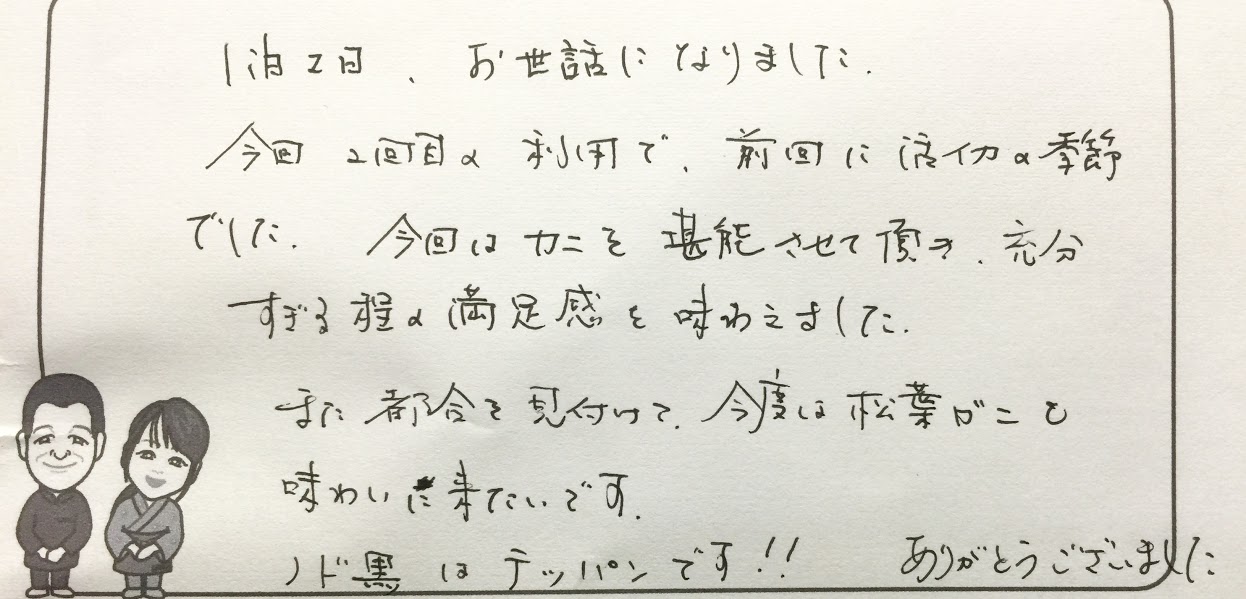 1泊2日、お世話になりました.
今回2回目の利用で、前回に活イカの季節
でした. 今回はカニを堪能させて頂き、充分
すぎる程の満足感を味わえました.
また都合を見付けて、今度は松葉がにを
味わいに来たいです.
ノド黒はテッパンです!! ありがとうございました